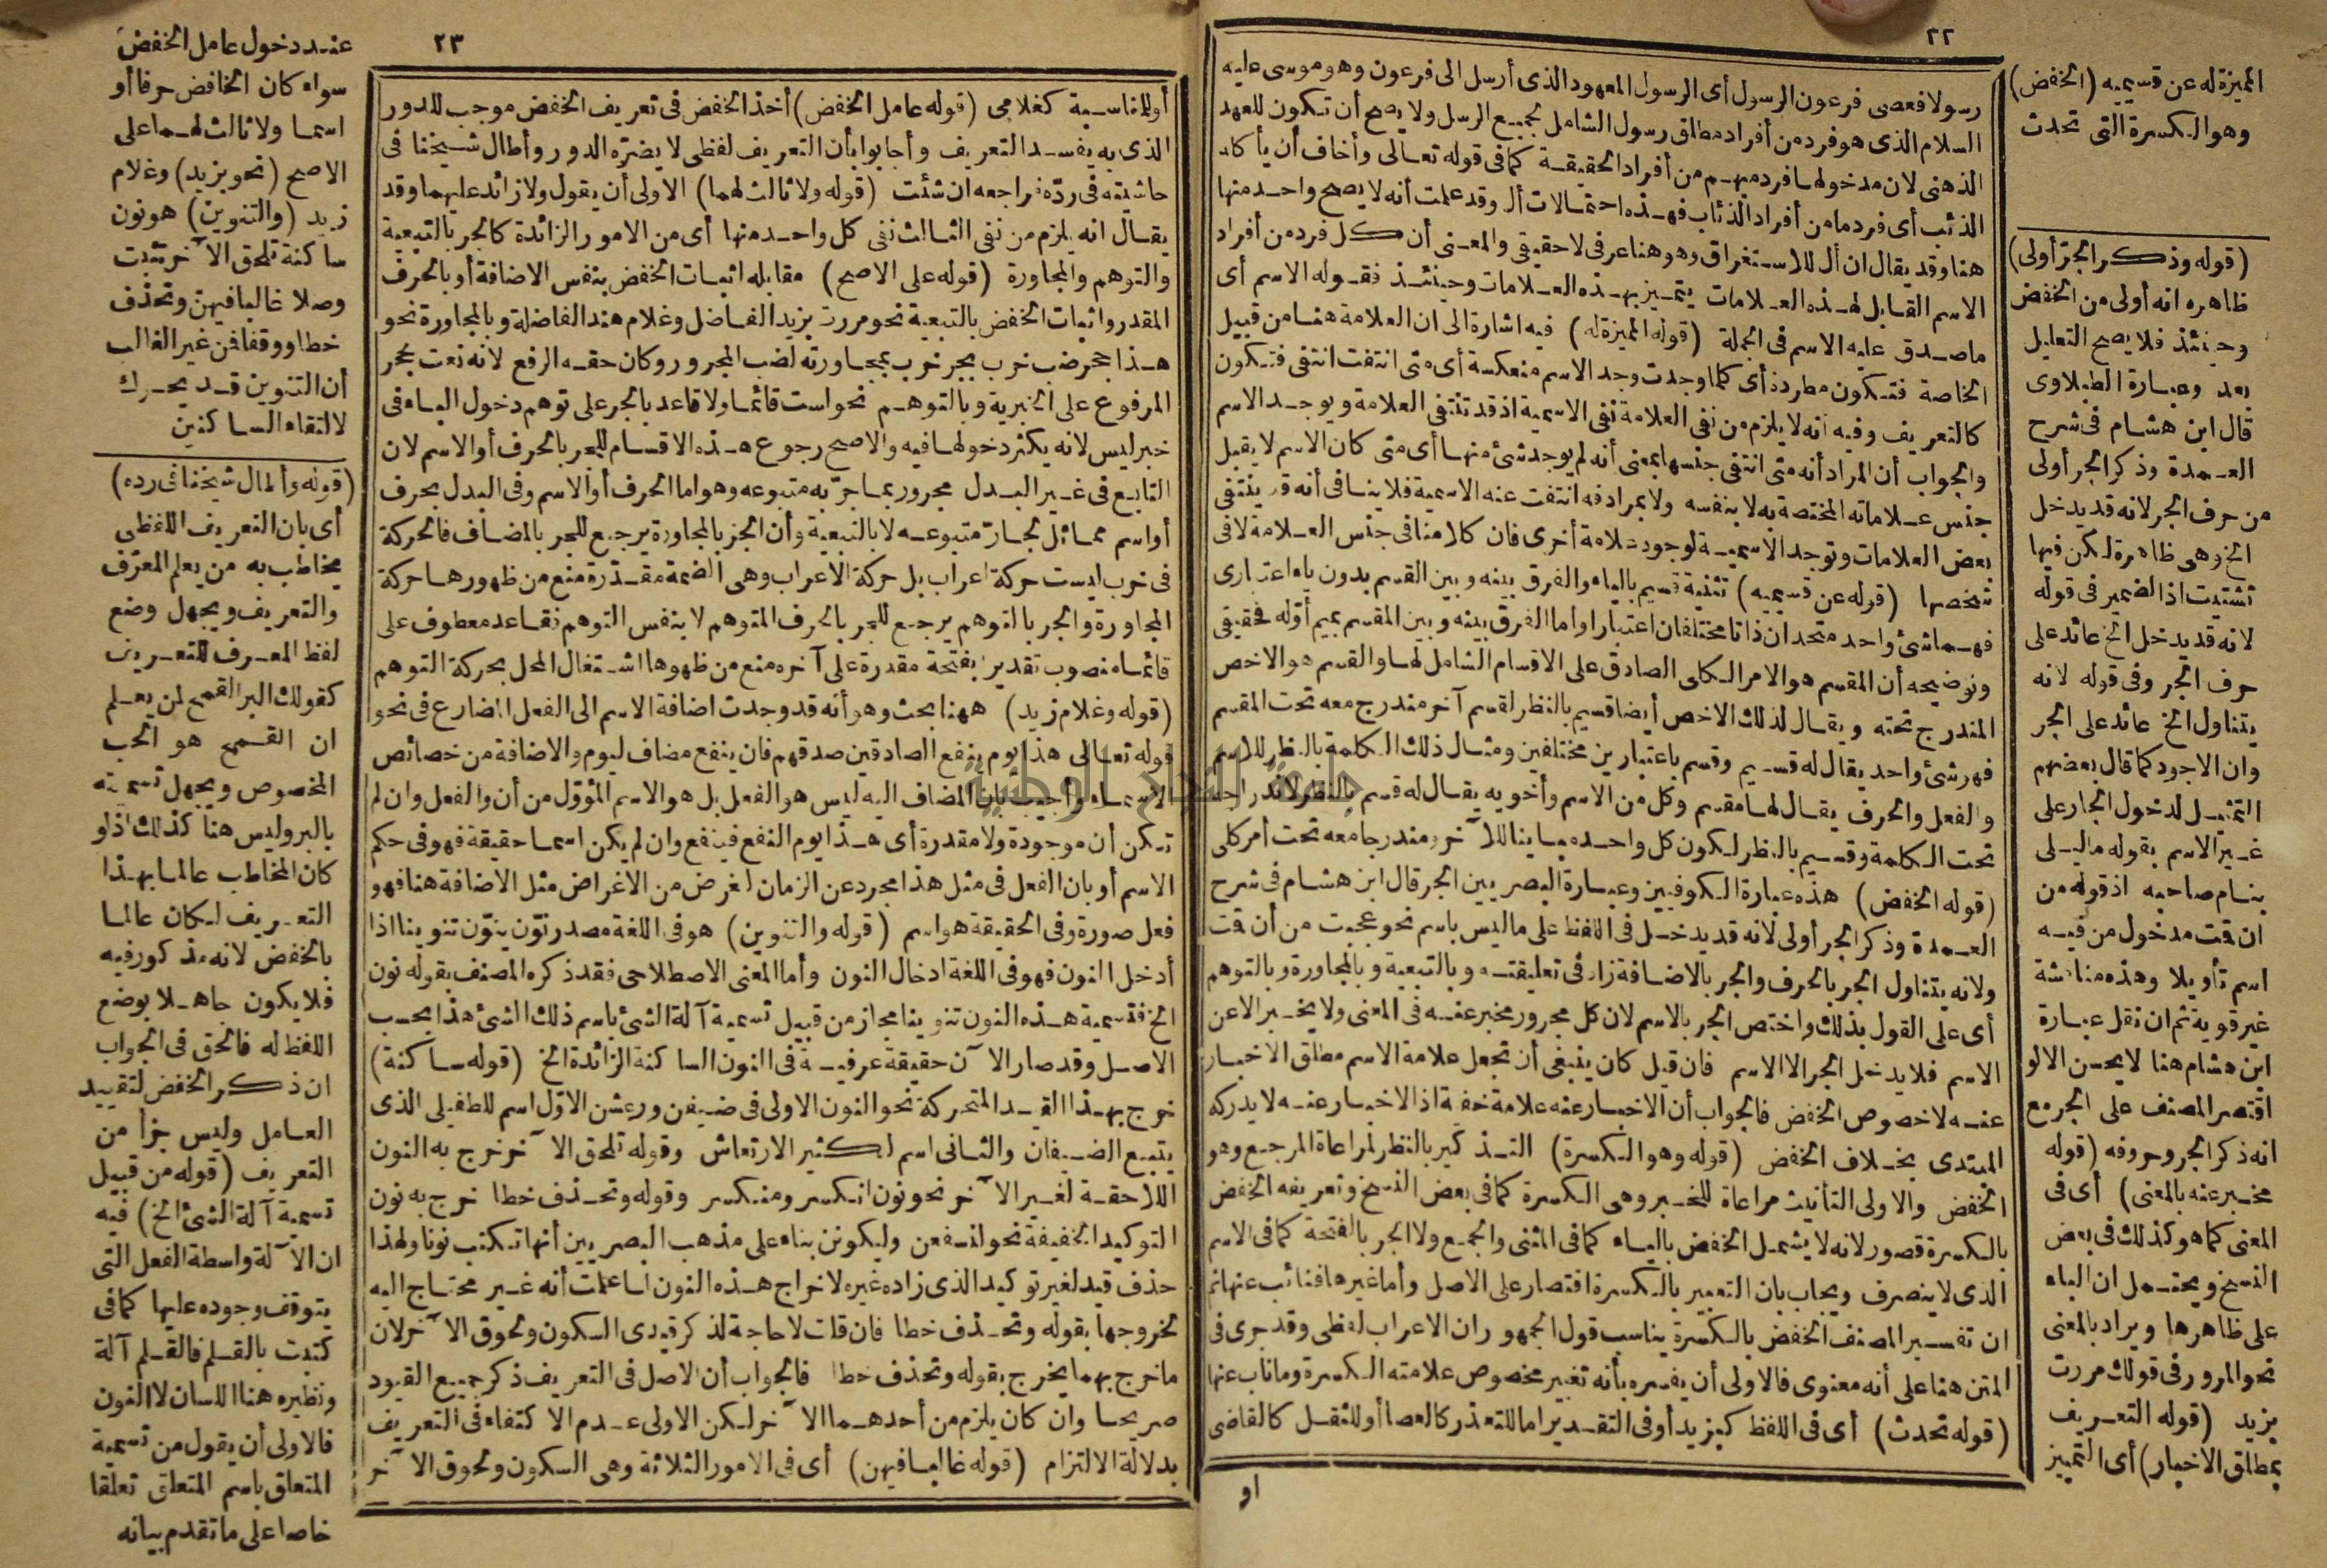 ٢٢
رسولا فعصى فرعون الرسول أى الرسول المعهود الذى أرسل الى فرعون وهو موسى عليه
السلام الذى هو فرد من أفراد مطلق رسول الشامل لجميع الرسل ولا يصح أن تكون للعهد
الذهنى لان مدخولها فرد مبهم من أفراد الحقيقة كما فى قوله تعالى وأخاف أن يأكله
الذئب أى فرد ما من أفراد الذئاب فهذه احتمالات أل وقد علمت أنه لا يصح واحد منها
هنا وقد يقال ان أل للاستغراق وهو هنا عرفى لا حقيقى والمعنى أن كل فرد من أفراد
الاسم القابل لهذه العلامات يتميز بهذه العلامات وحينئذ فقوله الاسم أى
ماصدق عليه الاسم فى الجملة (قوله المميزة له) فيه اشارة الى ان العلامة هنا من قبيل
الخاصة فتكون مطردة أى كلما وجدت وجد الاسم منعكسة أى متى انتفت انتفى فتكون
كالتعريف وفيه أنه لا يلزم من نفى العلامة نفى الاسمية اذ قد تنتفى العلامة ويوجد الاسم
والجواب أن المراد أنه متى انتفى جنسها بمعنى أنه لم يوجد شئ منها أى متى كان الاسم لا يقبل
جنس علاماته المختصة به لا بنفسه ولا بمرادفه انتفت عنه الاسمية فلا ينافى أنه قد ينتفى
بعض العلامات وتوجد الاسمية لوجود علامة أخرى فان كلامنا فى جنس العلامة لا فى
شخصها (قوله عن قسيميه) تثنية قسيم بالياء والفرق بينه وبين القسم بدون ياء اعتبارى
فهما شئ واحد متحدان ذاتا مختلفان اعتبارا وأما الفرق بينه وبين المقسم بميم أوّله فحقيقى
وتوضيحه أن المقسم هو الامر الكلى الصادق على الاقسام الشامل لها والقسم هو الاخص
المندرج تحته ويقال لذلك الاخص أيضا قسيم بالنظر لقسم آخر مندرج معه تحت المقسم
فهو شئ واحد يقال له قسيم وقسم باعتبارين مختلفين ومثال ذلك الكلمة بالنظر للاسم
والفعل والحرف يقال لها مقسم وكل من الاسم وأخويه يقال له قسم بالنظر لاندراجه
تحت الكلمة وقسيم بالنظر لكون كل واحد مباينا للآخر مندرجا معه تحت أمر كلى
(قوله الخفض) هذه عبارة الكوفيين وعبارة البصريين الجر قال ابن هشام فى شرح
العمدة وذكر الجر أولى لانه قد يدخل فى اللفظ على ما ليس باسم نحو عجبت من أن قمت
ولانه يتناول الجر بالحرف والجر بالاضافة زاد فى تعليقته وبالتبعية وبالمجاورة وبالتوهم
أى على القول بذلك واختص الجر بالاسم لان كل مجرور مخبر عنه فى المعنى ولا يخبر الا عن
الاسم فلا يدخل الجر الا الاسم فان قيل كان ينبغى أن تجعل علامة الاسم مطلق الاخبار
عنه لا خصوص الخفض فالجواب أن الاخبار عنه علامة خفية اذ الاخبار عنه لا يدركه
المبتدى بخلاف الخفض (قوله وهو الكسرة) التذكير بالنظر لمراعاة المرجع وهو
الخفض والاولى التأنيث مراعاة للخبر وهى الكسرة كما فى بعض النسخ وتعريفه الخفض
بالكسرة قصور لانه لا يشمل الخفض بالياء كما فى المثنى والجمع ولا الجر بالفتحة كما فى الاسم
الذى لا ينصرف ويجاب بان التعبير بالكسرة اقتصار على الاصل وأما غيرها فنائب عنها ثم
ان تفسير المصنف الخفض بالكسرة يناسب قول الجمهور ان الاعراب لفظى وقد جرى فى
المتن هنا على أنه معنوى فالاولى أن يفسره بأنه تغيير مخصوص علامته الكسرة وما ناب عنها
(قوله تحدث) أى فى اللفظ كبزيد أو فى التقدير اما للتعذر كالعصا أو للثقل كالقاضى
او
المميزة له عن قسيميه (الخفض)
وهو الكسرة التى تحدث
(قوله وذكر الجر أولى)
ظاهره انه أولى من الخفض
وحينئذ فلا يصح التعليل
بعد وعبارة الطبلاوى
قال ابن هشام فى شرح
العمدة وذكر الجر أولى
من حرف الجر لانه قد يدخل
الخ وهى ظاهرة لكن فيها
تشتيت اذ الضمير فى قوله
لانه قد يدخل الخ عائد على
حرف الجر وفى قوله لانه
يتناول الخ عائد على الجر
وان الاجود كما قال بعضهم
التمثيل لدخول الجار على
غير الاسم بقوله ما ليلى
بنام صاحبه اذ قوله من
ان قمت مدخول من فيه
اسم تأويلا وهذه مناقشة
غير قوية ثم ان نقل عبارة
ابن هشام هنا لا يحسن الا لو
اقتصر المصنف على الجر مع
انه ذكر الجر وحروفه (قوله
مخبر عنه بالمعنى) أى فى
المعنى كما هو كذلك فى بعض
النسخ ويحتمل ان الباء
على ظاهرها ويراد بالمعنى
نحو المرور فى قولك مررت
بزيد (قوله التعريف
بمطلق الاخبار) أى التمييز
٢٣
أو للمناسبة كغلامى (قوله عامل الخفض) أخذ الخفض فى تعريف الخفض موجب للدور
الذى به يفسد التعريف وأجابوا بأن التعريف لفظى لا يضره الدور وأطال شيخنا فى
حاشيته فى ردّه فراجعه ان شئت (قوله ولا ثالث لهما) الاولى أن يقول ولا زائد عليهما وقد
يقال انه يلزم من نفى الثالث نفى كل واحد منها أى من الامور الزائدة كالجر بالتبعية
والتوهم والمجاورة (قوله على الاصح) مقابله اثبات الخفض بنفس الاضافة أو بالحرف
المقدر واثبات الخفض بالتبعية نحو مررت بزيد الفاضل وغلام هند الفاضلة وبالمجاورة نحو
هذا جحر ضب خرب بجر خرب بمجاورته لضب المجرور وكان حقه الرفع لانه نعت لجحر
المرفوع على الخبرية وبالتوهم نحو لست قائما ولا قاعد بالجر على توهم دخول الباء فى
خبر ليس لانه يكثر دخولها فيه والاصح رجوع هذه الاقسام للجر بالحرف أو الاسم لان
التابع فى غير البدل مجرور بما جرّ به متبوعه وهو اما الحرف أو الاسم وفى البدل بحرف
أو اسم مماثل لجارّ متبوعه لا بالتبعية وأن الجر بالمجاورة يرجع للجر بالمضاف فالحركة
فى خرب ليست حركة اعراب بل حركة الاعراب وهى الضمة مقدّرة منع من ظهورها حركة
المجاورة والجر بالتوهم يرجع للجر بالحرف المتوهم لا بنفس التوهم فقاعد معطوف على
قائما منصوب تقديرا بفتحة مقدرة على آخره منع من ظهورها اشتغال المحل بحركة التوهم
(قوله وغلام زيد) ههنا بحث وهو أنه قد وجدت اضافة الاسم الى الفعل المضارع فى نحو
قوله تعالى هذا يوم ينفع الصادقين صدقهم فان ينفع مضاف ليوم والاضافة من خصائص
الاسماء وأجيب بان المضاف اليه ليس هو الفعل بل هو الاسم المؤوّل من أن والفعل وان لم
تكن أن موجودة ولا مقدرة أى هذا يوم النفع فينفع وان لم يكن اسما حقيقة فهو فى حكم
الاسم أو بان الفعل فى مثل هذا مجرد عن الزمان لغرض من الاغراض مثل الاضافة هنا فهو
فعل صورة وفى الحقيقة هو اسم (قوله والتنوين) هو فى اللغة مصدر نوّن ينوّن تنوينا اذا
أدخل النون فهو فى اللغة ادخال النون وأما المعنى الاصطلاحى فقد ذكره المصنف بقوله نون
الخ فتسمية هذه النون تنوينا مجاز من قبيل تسمية آلة الشئ باسم ذلك الشئ هذا بحسب
الاصل وقد صار الآن حقيقة عرفية فى النون الساكنة الزائدة الخ (قوله ساكنة)
خرج بهذا القيد المتحركة نحو النون الاولى فى ضيفن ورعشن الاوّل اسم للطفيلى الذى
يتبع الضيفان والثانى اسم لكثير الارتعاش وقوله تلحق الآخر خرج به النون
اللاحقة لغير الآخر نحو نون انكسر ومنكسر وقوله وتحذف خطا خرج به نون
التوكيد الخفيفة نحو لنسفعن وليكونن بناء على مذهب البصريين أنها تكتب نونا ولهذا
حذف قيد لغير توكيد الذى زاده غيره لاخراج هذه النون لما علمت أنه غير محتاج اليه
لخروجها بقوله وتحذف خطا فان قلت لا حاجة لذكر قيدى السكون ولحوق الآخر لان
ما خرج بهما يخرج بقوله وتحذف خطا فالجواب أن الاصل فى التعريف ذكر جميع القيود
صريحا وان كان يلزم من أحدهما الآخر لكن الاولى عدم الاكتفاء فى التعريف
بدلالة الالتزام (قوله غالبا فيهن) أى فى الامور الثلاثة وهى السكون ولحوق الآخر
عند دخول عامل الخفض
سواء كان الخافض حرفا أو
اسما ولا ثالث لهما على
الاصح (نحو بزيد) وغلام
زيد (والتنوين) هو نون
ساكنة تلحق الآخر تثبت
وصلا غالبا فيهن وتحذف
خطا ووقفا فن غير الغالب
أن التنوين قد يحرك
لالتقاء الساكنين
(قوله وأطال شيخنا فى رده)
أى بان التعريف اللفظى
يخاطب به من يعلم المعرّف
والتعريف ويجهل وضع
لفظ المعرف للتعريف
كقولك البر القمح لمن يعلم
ان القمح هو الحب
المخصوص ويجهل تسميته
بالبر وليس هنا كذلك اذ لو
كان المخاطب عالما بهذا
التعريف لكان عالما
بالخفض لانه مذكور فيه
فلا يكون جاهلا بوضع
اللفظ له فالحق فى الجواب
ان ذكر الخفض لتقييد
العامل وليس جزأ من
التعريف (قوله من قبيل
تسمية آلة الشئ الخ) فيه
ان الآلة واسطة الفعل التى
يتوقف وجوده عليها كما فى
كتبت بالقلم فالقلم آلة
ونظيره هنا اللسان لا النون
فالاولى أن يقول من تسمية
المتعلق باسم المتعلق تعلقا
خاصا على ما تقدم بيانه
جامعة النجاح الوطنية